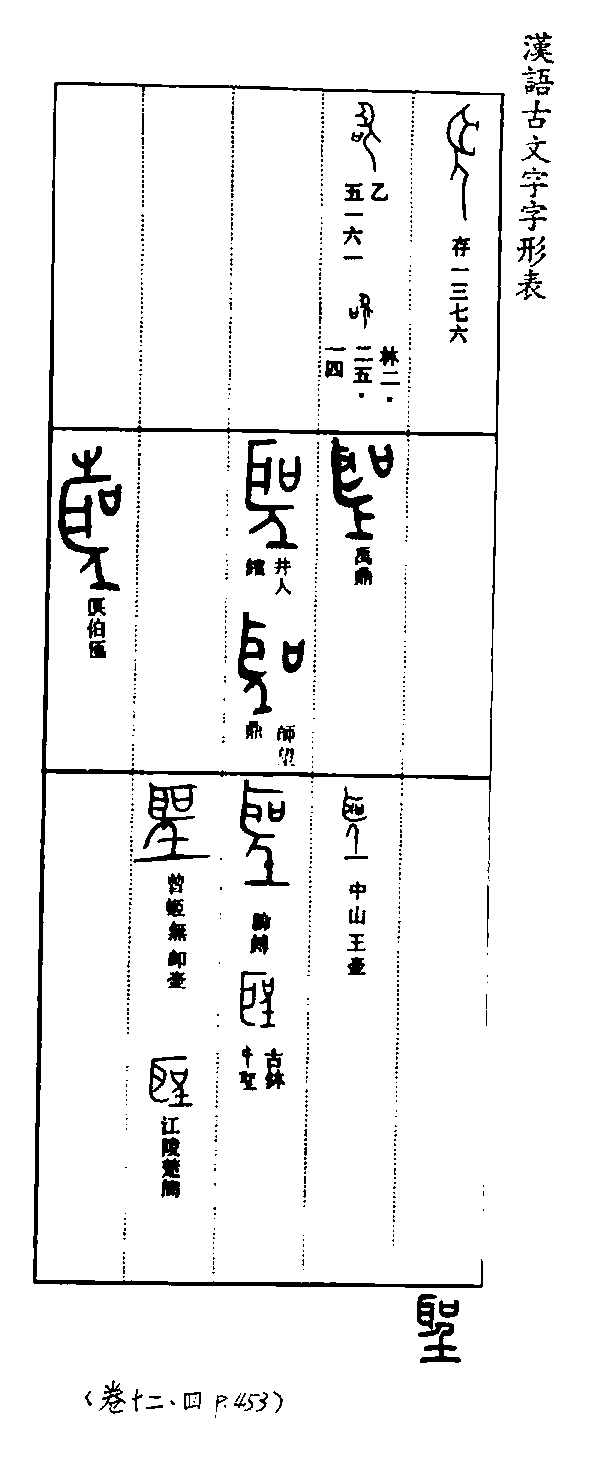 漢語古文字字形表
存一三七六
乙
五一六一
林二．
二五．
一四
禹鼎
井人
鐘
師望
鼎
伯匜
中山王壺
鎛
古鉢
千聖
曾姬無卹壺
江陵楚簡
聖
(卷十二、四 P.453)